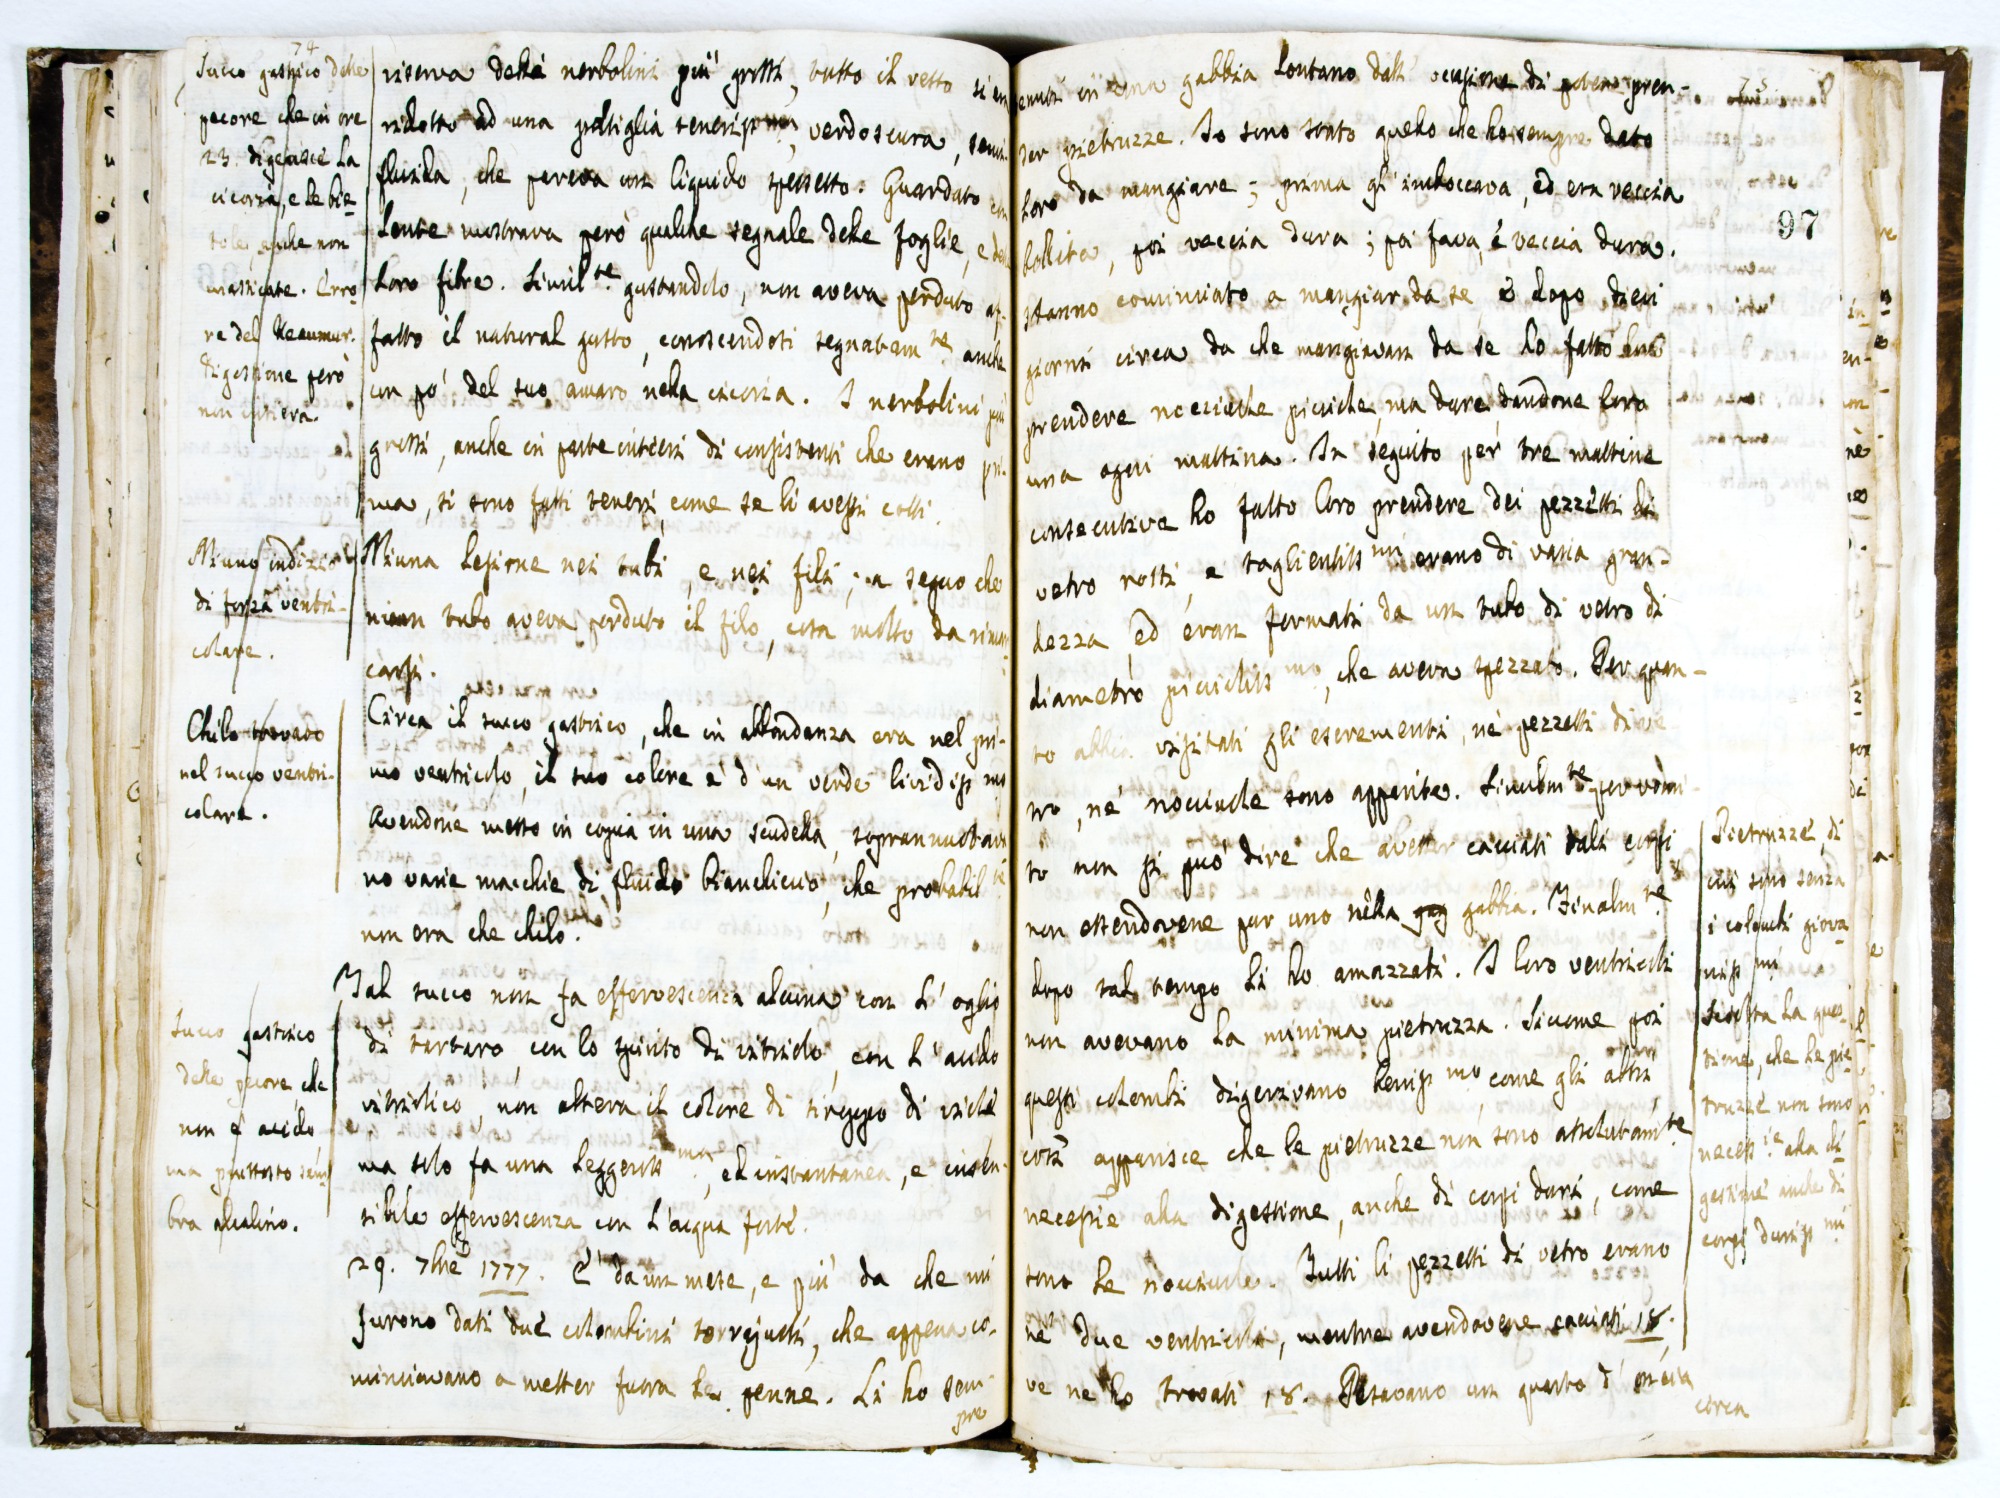 74
Succo gastrico delle
pecore che in ore
23. digerisce la
cicoria, e le bie=
tole, anche non
masticate. Erro
re del Reaumur.
Digestione però
non intiera.
riserva delle nerbolini più grossi, tutto il resto si era
ridotto ad una poltiglia tenerissma, verdoscura, semi-
fluida, che pareva un liquido spessetto. Guardato con
lente mostrava però qualche segnale delle foglie, e delle
loro fibre. Similte gustandolo, non aveva perduto af-
fatto il natural gusto, conoscendosi segnatamte anche
un pò del suo amaro nella cicoria. I nerbolini più
grossi, anche in parte intieri di consistenti che erano pri-
ma, si sono fatti teneri, come se li avessi cotti.
Niuno indizio
di forza ventri-
colare.
Niuna lesione nei tubi, e nei fili; a segno che
niun tubo aveva perduto il filo, cosa molto da rimar-
carsi.
Chilo trovato
nel succo ventri-
colare.
Circa il succo gastrico, che in abbondanza era nel pri-
mo ventricolo, il suo colore e' d'un verde lividissmo
Avendone messo in copia in una scudella, soprannuotava
no varie macchie di fluido bianchiccio, che probabilte
non era che chilo.
Succo gastrico
delle pecore, che
non è acido
ma piuttosto sem
bra alcalino.
Tal succo non fa effervescenza alcuna con l'oglio
di tartaro, con lo spirito di vitriolo, con l'acido
vitriolico, non altera il colore di siroppo di viole
ma solo fa una leggerissma, ed instantanea, e insen-
sibile effervescenza con l'acqua forte.
29. 7bre 1777. E' da un mese, e più da che mi
furono dati due colombini torrajuoli, che appena co-
minciavano a metter fuora le penne. Li ho sem-
pre
75
97
tenuti in una gabbia lontano dall' occasione di poter pren-
der pietruzze. Io sono stato quello che ho sempre dato
loro da mangiare; prima gl'imboccava, ed era veccia
bollita, poi veccia dura; poi fava, e veccia dura.
Hanno cominciato a mangiar da sè e dopo dieci
giorni circa da che mangiavan da sè ho fatto loro
prendere nocciuole picciole, ma dure dandone loro
una ogni mattina. In seguito per tre mattine
consecutive ho fatto loro prendere dei pezzetti di
vetro rotti, e taglientissmi erano di varia gran-
dezza, ed eran formati da un tubo di vetro di
diametro picciolissmo, che aveva spezzato. Per quan-
to abbia visitati gli escrementi, nè pezzetti di ve
tro, nè nocciuole sono apparite. Similmte per vomi-
to non si può dire che abbiano cacciati tali corpi
non essendovene pur uno nella gag gabbia. Finalmte
dopo tal tempo li ho amazzati. I loro ventricoli
non avevano la minima pietruzza. Siccome poi
questi colombi digerivano benissmo, come gli altri
così apparisce che le pietruzze non sono assolutamte
necessie alla digestione, anche di corpi duri, come
sono le nocciuole. Tutti li pezzetti di vetro erano
ne' due ventricoli, mentre avendovene cacciati 18.
ve ne ho trovati 18. Pesavano un quarto d'oncia
circa
Pietruzze, di
cui sono senza
i colombi giova
nissmi
Sciolta la ques-
tione, che le pie
truzze non sono
necessie alla di
gestione anche di
corpi durissmi